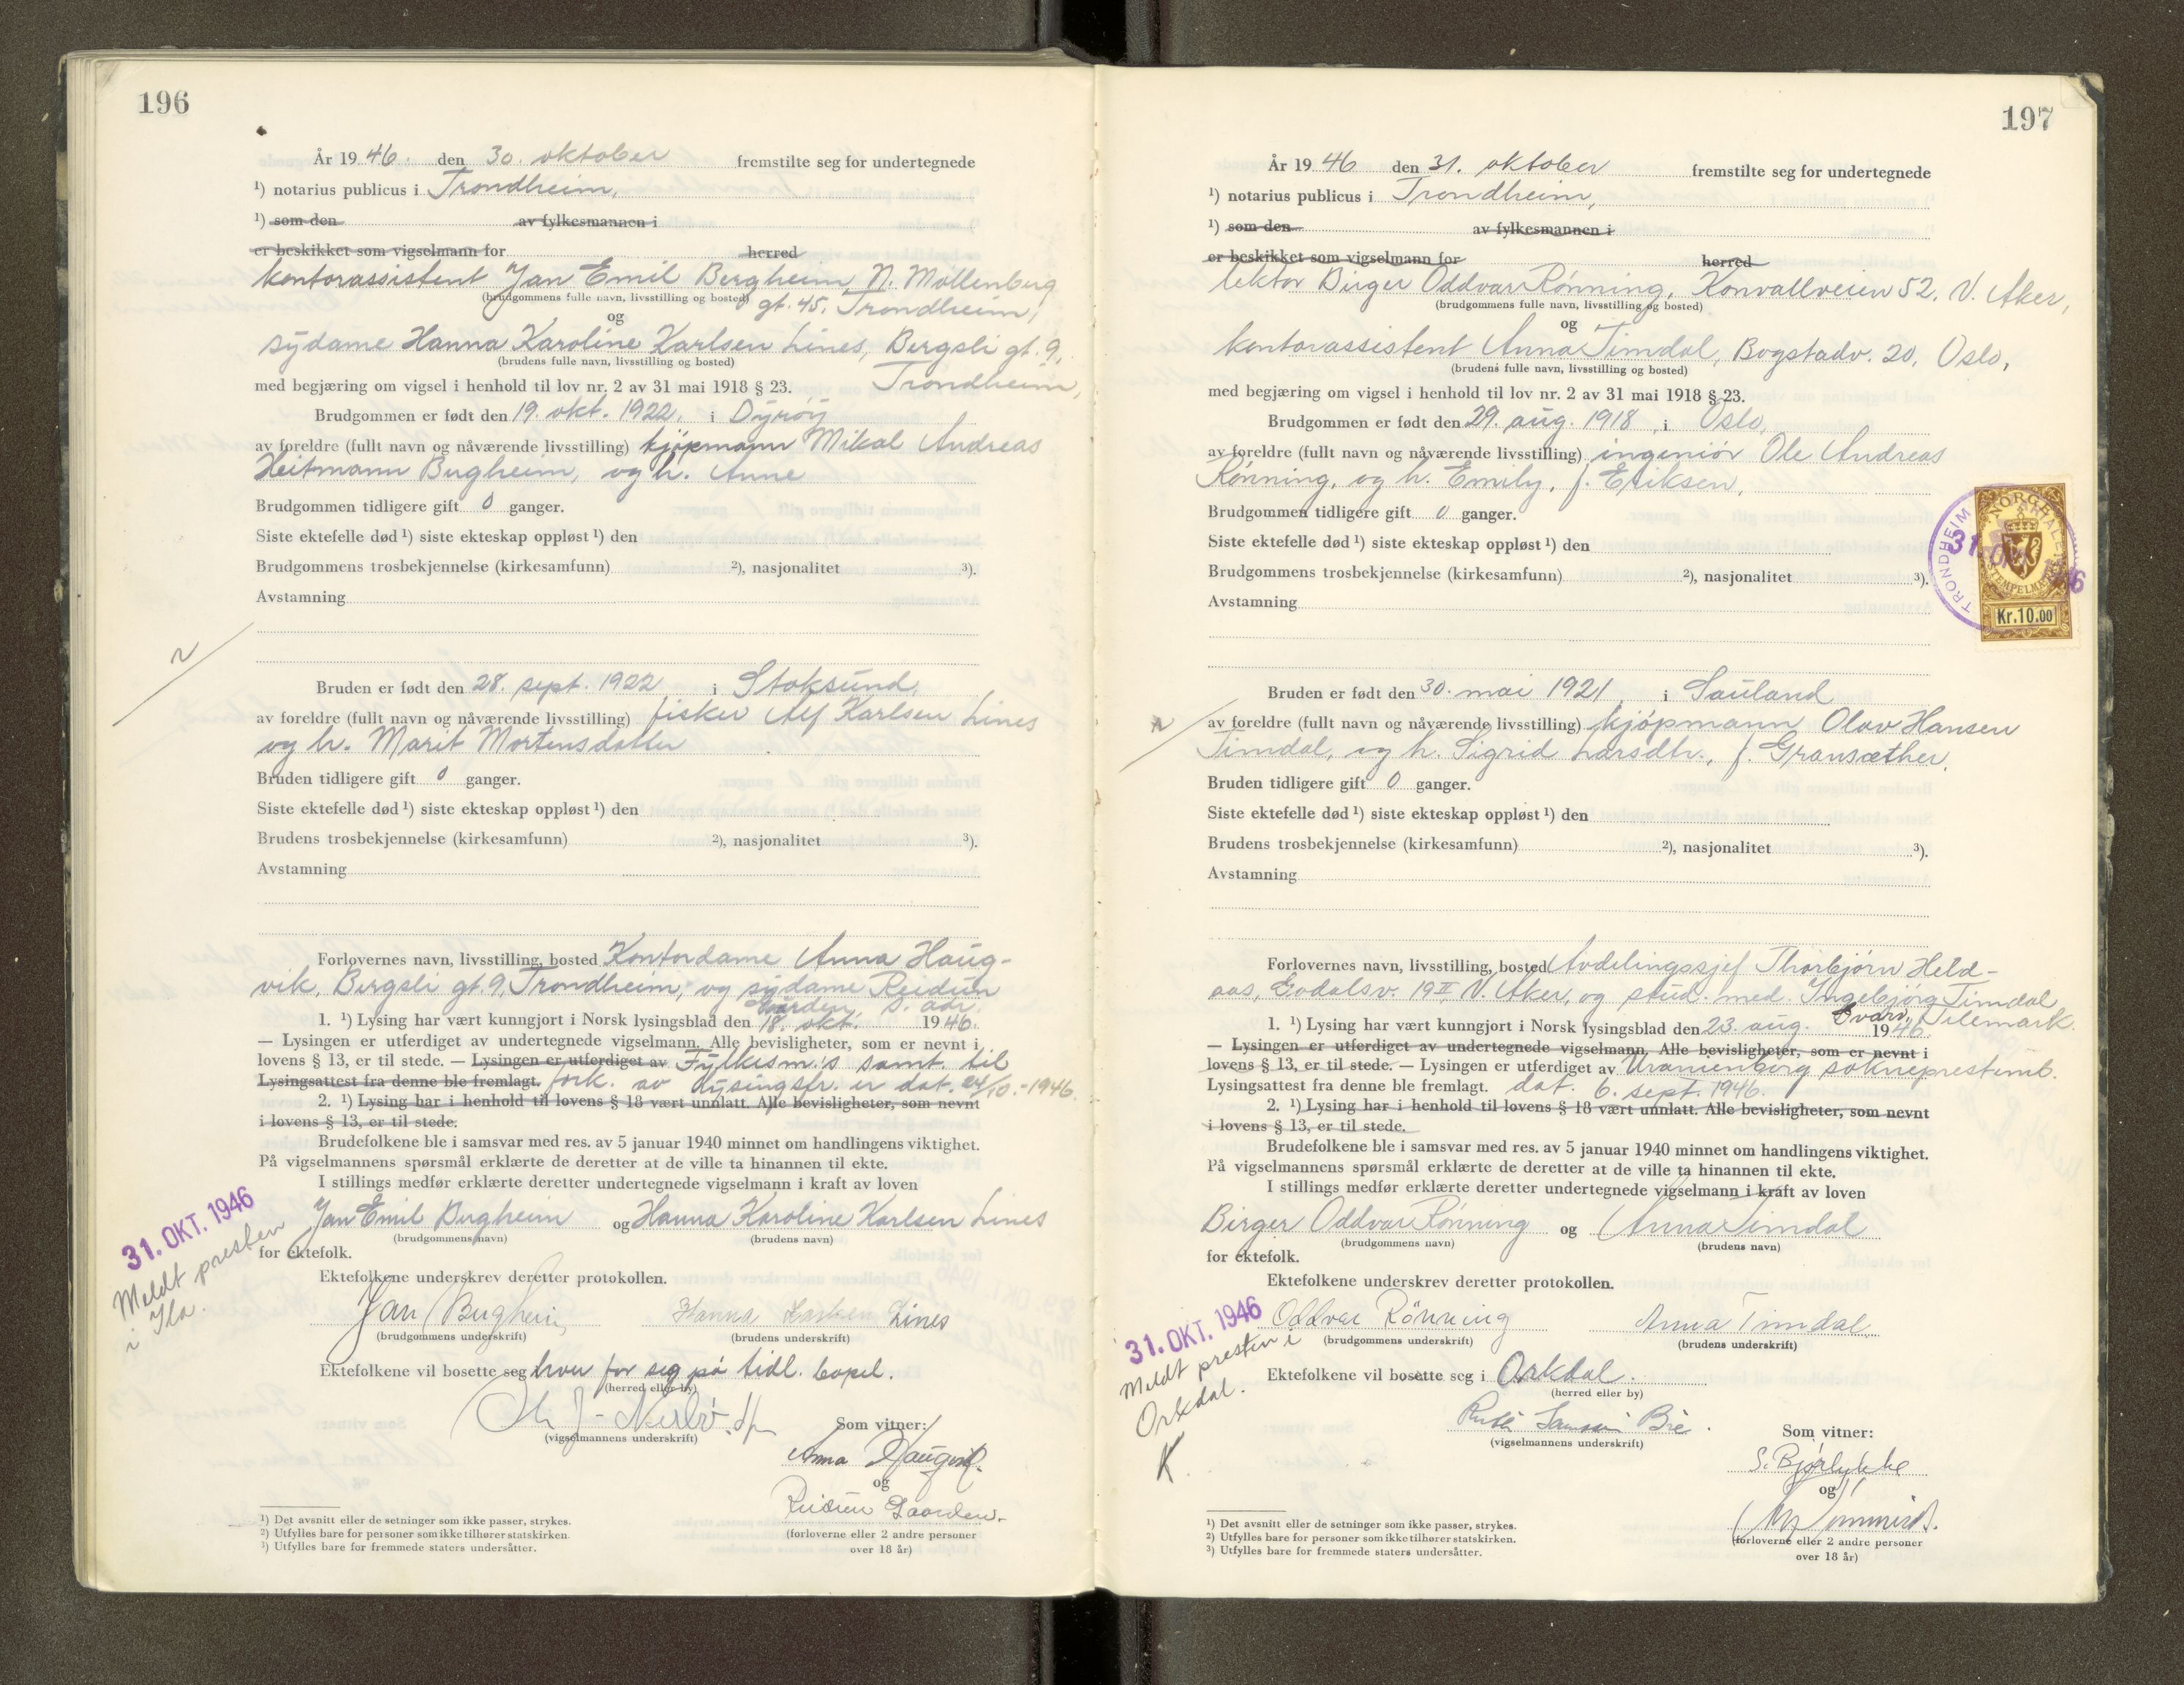 196
År 19 46. den 30. oktober fremstilte seg for undertegnede
¹) notarius publicus i Trondheim,
¹) som den av fylkesmannen i
er beskikket som vigselmann for herred
kontorassistent Jan Emil Bergheim, N. Møllenberg
(brudgommens fulle navn, livsstilling og bosted)
gt. 45, Trondheim,
og
sydame Hanna Karoline Karlsen Lines, Bergsli gt. 9,
(brudens fulle navn, livsstilling og bosted)
Trondheim,
med begjæring om vigsel i henhold til lov nr. 2 av 31 mai 1918 § 23.
Brudgommen er født den 19. okt. 1922. i Dyrøy
av foreldre (fullt navn og nåværende livsstilling) kjøpmann Mikal Andreas
Heitmann Bergheim, og h. Anne
Brudgommen tidligere gift 0 ganger.
Siste ektefelle død ¹) siste ekteskap oppløst ¹) den
Brudgommens trosbekjennelse (kirkesamfunn) ²), nasjonalitet ³).
Avstamning
Bruden er født den 28. sept. 1922 i Stoksund,
av foreldre (fullt navn og nåværende livsstilling) fisker Alf Karlsen Lines
og h. Marit Mortensdatter
Bruden tidligere gift 0 ganger.
Siste ektefelle død ¹) siste ekteskap oppløst ¹) den
Brudens trosbekjennelse (kirkesamfunn) ²), nasjonalitet ³).
Avstamning
Forlovernes navn, livsstilling, bosted Kontordame Anna Haug-
vik, Bergsli gt. 9, Trondheim, og sydame Reidun
Gården, s. adr.
1. ¹) Lysing har vært kunngjort i Norsk lysingsblad den 18. okt. 1946.
— Lysingen er utferdiget av undertegnede vigselmann. Alle bevisligheter, som er nevnt i
lovens § 13, er til stede. — Lysingen er utferdiget av Fylkesm.'s samt. til
Lysingsattest fra denne ble fremlagt. fork. av lysingsfr. er dat. 24/10.-1946.
2. ¹) Lysing har i henhold til lovens § 18 vært unnlatt. Alle bevisligheter, som nevnt
i lovens § 13, er til stede.
Brudefolkene ble i samsvar med res. av 5 januar 1940 minnet om handlingens viktighet.
På vigselmannens spørsmål erklærte de deretter at de ville ta hinannen til ekte.
I stillings medfør erklærte deretter undertegnede vigselmann i kraft av loven
Jan Emil Bergheim og Hanna Karoline Karlsen Lines
(brudgommens navn) (brudens navn)
for ektefolk.
31. OKT. 1946
Meldt presten
i Ila.
Ektefolkene underskrev deretter protokollen.
Jan Bergheim Hanna Karlsen Lines
(brudgommens underskrift) (brudens underskrift)
Ektefolkene vil bosette seg hver for seg på tidl. bopel.
(herred eller by)
(vigselmannens underskrift)
Som vitner:
Anna Haugvik.
og
Reidun Gaarden.
(forloverne eller 2 andre personer
over 18 år)
¹) Det avsnitt eller de setninger som ikke passer, strykes.
²) Utfylles bare for personer som ikke tilhører statskirken.
³) Utfylles bare for fremmede staters undersåtter.
197
År 19 46 den 31. oktober fremstilte seg for undertegnede
¹) notarius publicus i Trondheim,
¹) som den av fylkesmannen i
er beskikket som vigselmann for herred
lektor Birger Oddvar Rønning, Konvallveien 52, V. Aker,
(brudgommens fulle navn, livsstilling og bosted)
og
kontorassistent Anna Timdal, Bogstadv. 20, Oslo,
(brudens fulle navn, livsstilling og bosted)
med begjæring om vigsel i henhold til lov nr. 2 av 31 mai 1918 § 23.
Brudgommen er født den 29. aug. 1918, i Oslo,
av foreldre (fullt navn og nåværende livsstilling) ingeniør Ole Andreas
Rønning, og h. Emily, f. Eriksen,
Brudgommen tidligere gift 0 ganger.
Siste ektefelle død ¹) siste ekteskap oppløst ¹) den
Brudgommens trosbekjennelse (kirkesamfunn) ²), nasjonalitet ³).
Avstamning
NORGE
STEMPELMERKE
Kr.10.00
TRONDHEIM
31 OKT 1946
Bruden er født den 30. mai 1921, i Sauland
av foreldre (fullt navn og nåværende livsstilling) kjøpmann Olav Hansen
Timdal, og h. Sigrid Larsdtr., f. Gransæther,
Bruden tidligere gift 0 ganger.
Siste ektefelle død ¹) siste ekteskap oppløst ¹) den
Brudens trosbekjennelse (kirkesamfunn) ²), nasjonalitet ³).
Avstamning
Forlovernes navn, livsstilling, bosted Avdelingssjef Thorbjørn Held-
aas, Godalsv. 19 II, V. Aker, og stud. med. Ingebjørg Timdal
Telemark.
1. ¹) Lysing har vært kunngjort i Norsk lysingsblad den 23. aug. 1946
— Lysingen er utferdiget av undertegnede vigselmann. Alle bevisligheter, som er nevnt i
lovens § 13, er til stede. — Lysingen er utferdiget av Uranienborg sokneprestemb.
Lysingsattest fra denne ble fremlagt. dat. 6. sept. 1946.
2. ¹) Lysing har i henhold til lovens § 18 vært unnlatt. Alle bevisligheter, som nevnt
i lovens § 13, er til stede.
Brudefolkene ble i samsvar med res. av 5 januar 1940 minnet om handlingens viktighet.
På vigselmannens spørsmål erklærte de deretter at de ville ta hinannen til ekte.
I stillings medfør erklærte deretter undertegnede vigselmann i kraft av loven
Birger Oddvar Rønning og Anna Timdal
(brudgommens navn) (brudens navn)
for ektefolk.
Ektefolkene underskrev deretter protokollen.
31. OKT. 1946
Meldt presten i
Orkdal.
K
Oddvar Rönning Anna Timdal
(brudgommens underskrift) (brudens underskrift)
Ektefolkene vil bosette seg i Orkdal.
(herred eller by)
(vigselmannens underskrift)
Som vitner:
S. Bjørlykke
og
(forloverne eller 2 andre personer
over 18 år)
¹) Det avsnitt eller de setninger som ikke passer, strykes.
²) Utfylles bare for personer som ikke tilhører statskirken.
³) Utfylles bare for fremmede staters undersåtter.